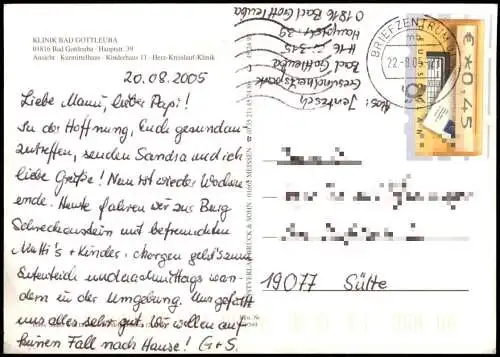 KLINIK BAD GOTTLEUBA
01816 Bad Gottleuba · Hauptstr. 39
Ansicht: Kurmittelhaus · Kinderhaus 11 · Herz-Kreislauf-Klinik
20.08.2005
Liebe Mami, lieber Papi!
In der Hoffnung, Euch gesund an-
zutreffen, senden Sandra und ich
liebe Grüße! Nun ist wieder Wochen
ende. Heute fahren wir zur Burg
Schreckenstein mit befreundeten
Mutti's + Kinder. Morgen geht's zum
und nachmittags wan-
dern in der Umgebung. Uns gefällt
uns alles sehr gut. Wir wollen auf
keinen Fall nach Hause! G+S.
Abs: Jentzsch
Gesundheitspark
Bad Gottleuba
H16 Zi 315
Hauptstr. 39
01816 Bad Gottleuba
BRIEFZENTRUM
22.-8.05
€ *0,45
19077 Sülte